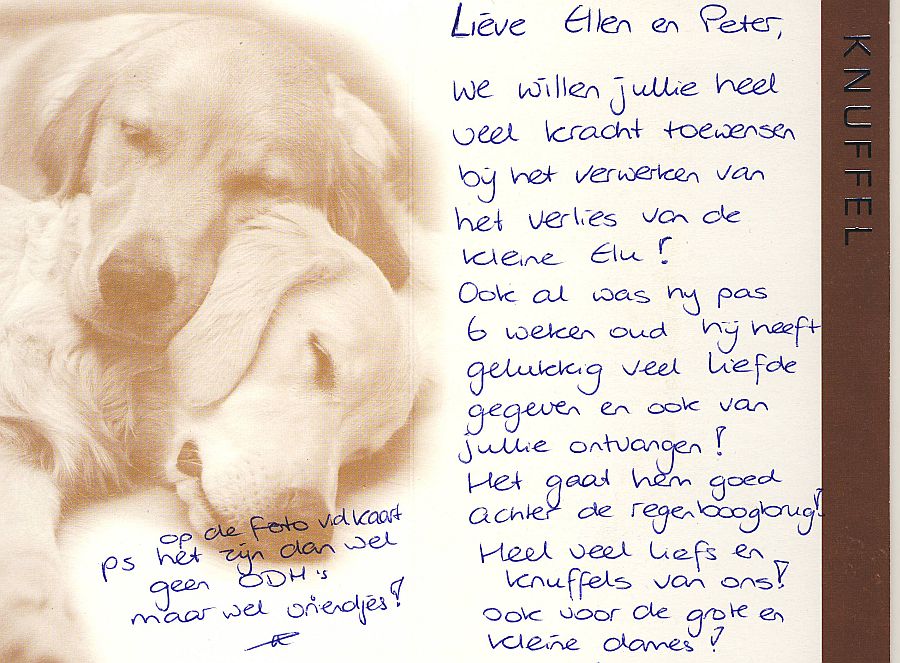 Lieve Ellen en Peter,
we willen jullie heel
veel kracht toewensen
bij het verwerken van
het verlies van de
kleine Elu!
Ook al was hij pas
6 weken oud hij heeft
gelukkig veel liefde
gegeven en ook van
jullie ontvangen!
Het gaat hem goed
achter de regenboogbrug!
Heel veel liefs en
knuffels van ons!
ook voor de grote en
kleine dames!
op de foto v/d kaart
ps het zijn dan wel
geen ODH's
maar wel vriendjes!
KNUFFEL